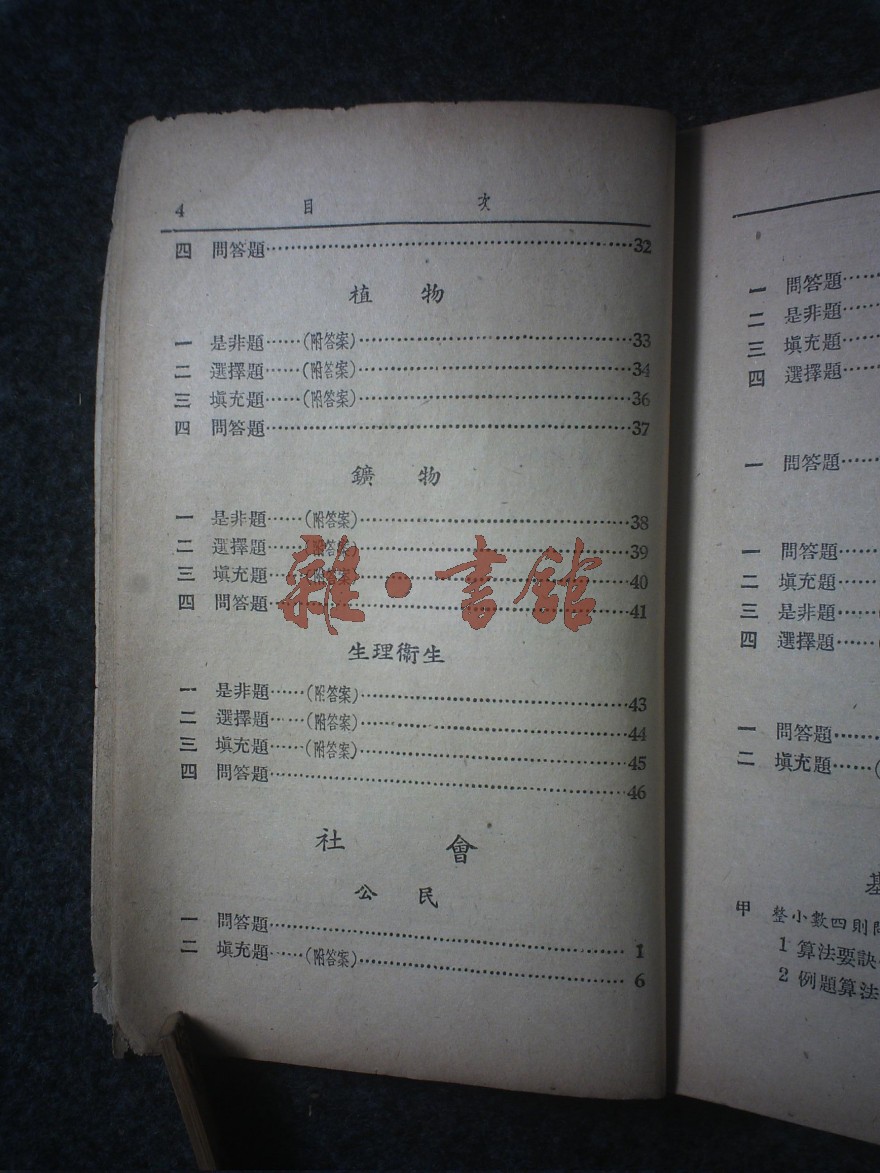 4 目 次
四 問答題……………………………………32
植 物
一 是非題……(附答案)……………………………33
二 選擇題……(附答案)……………………………34
三 塡充題……(附答案)……………………………36
四 問答題……………………………………37
鑛 物
一 是非題……(附答案)……………………………38
二 選擇題……(附答案)……………………………39
三 塡充題……(附答案)……………………………40
四 問答題……………………………………41
雜·書館
生理衞生
一 是非題……(附答案)……………………………43
二 選擇題……(附答案)……………………………44
三 塡充題……(附答案)……………………………45
四 問答題……………………………………46
社 會
公 民
一 問答題……………………………………1
二 塡充題……(附答案)……………………………6
一 問答題……
二 是非題……
三 塡充題……
四 選擇題……
一 問答題……
一 問答題……
二 塡充題……
三 是非題……
四 選擇題……
一 問答題……
二 塡充題……(
基
甲 整小數四則
1 算法要訣
2 例題算法